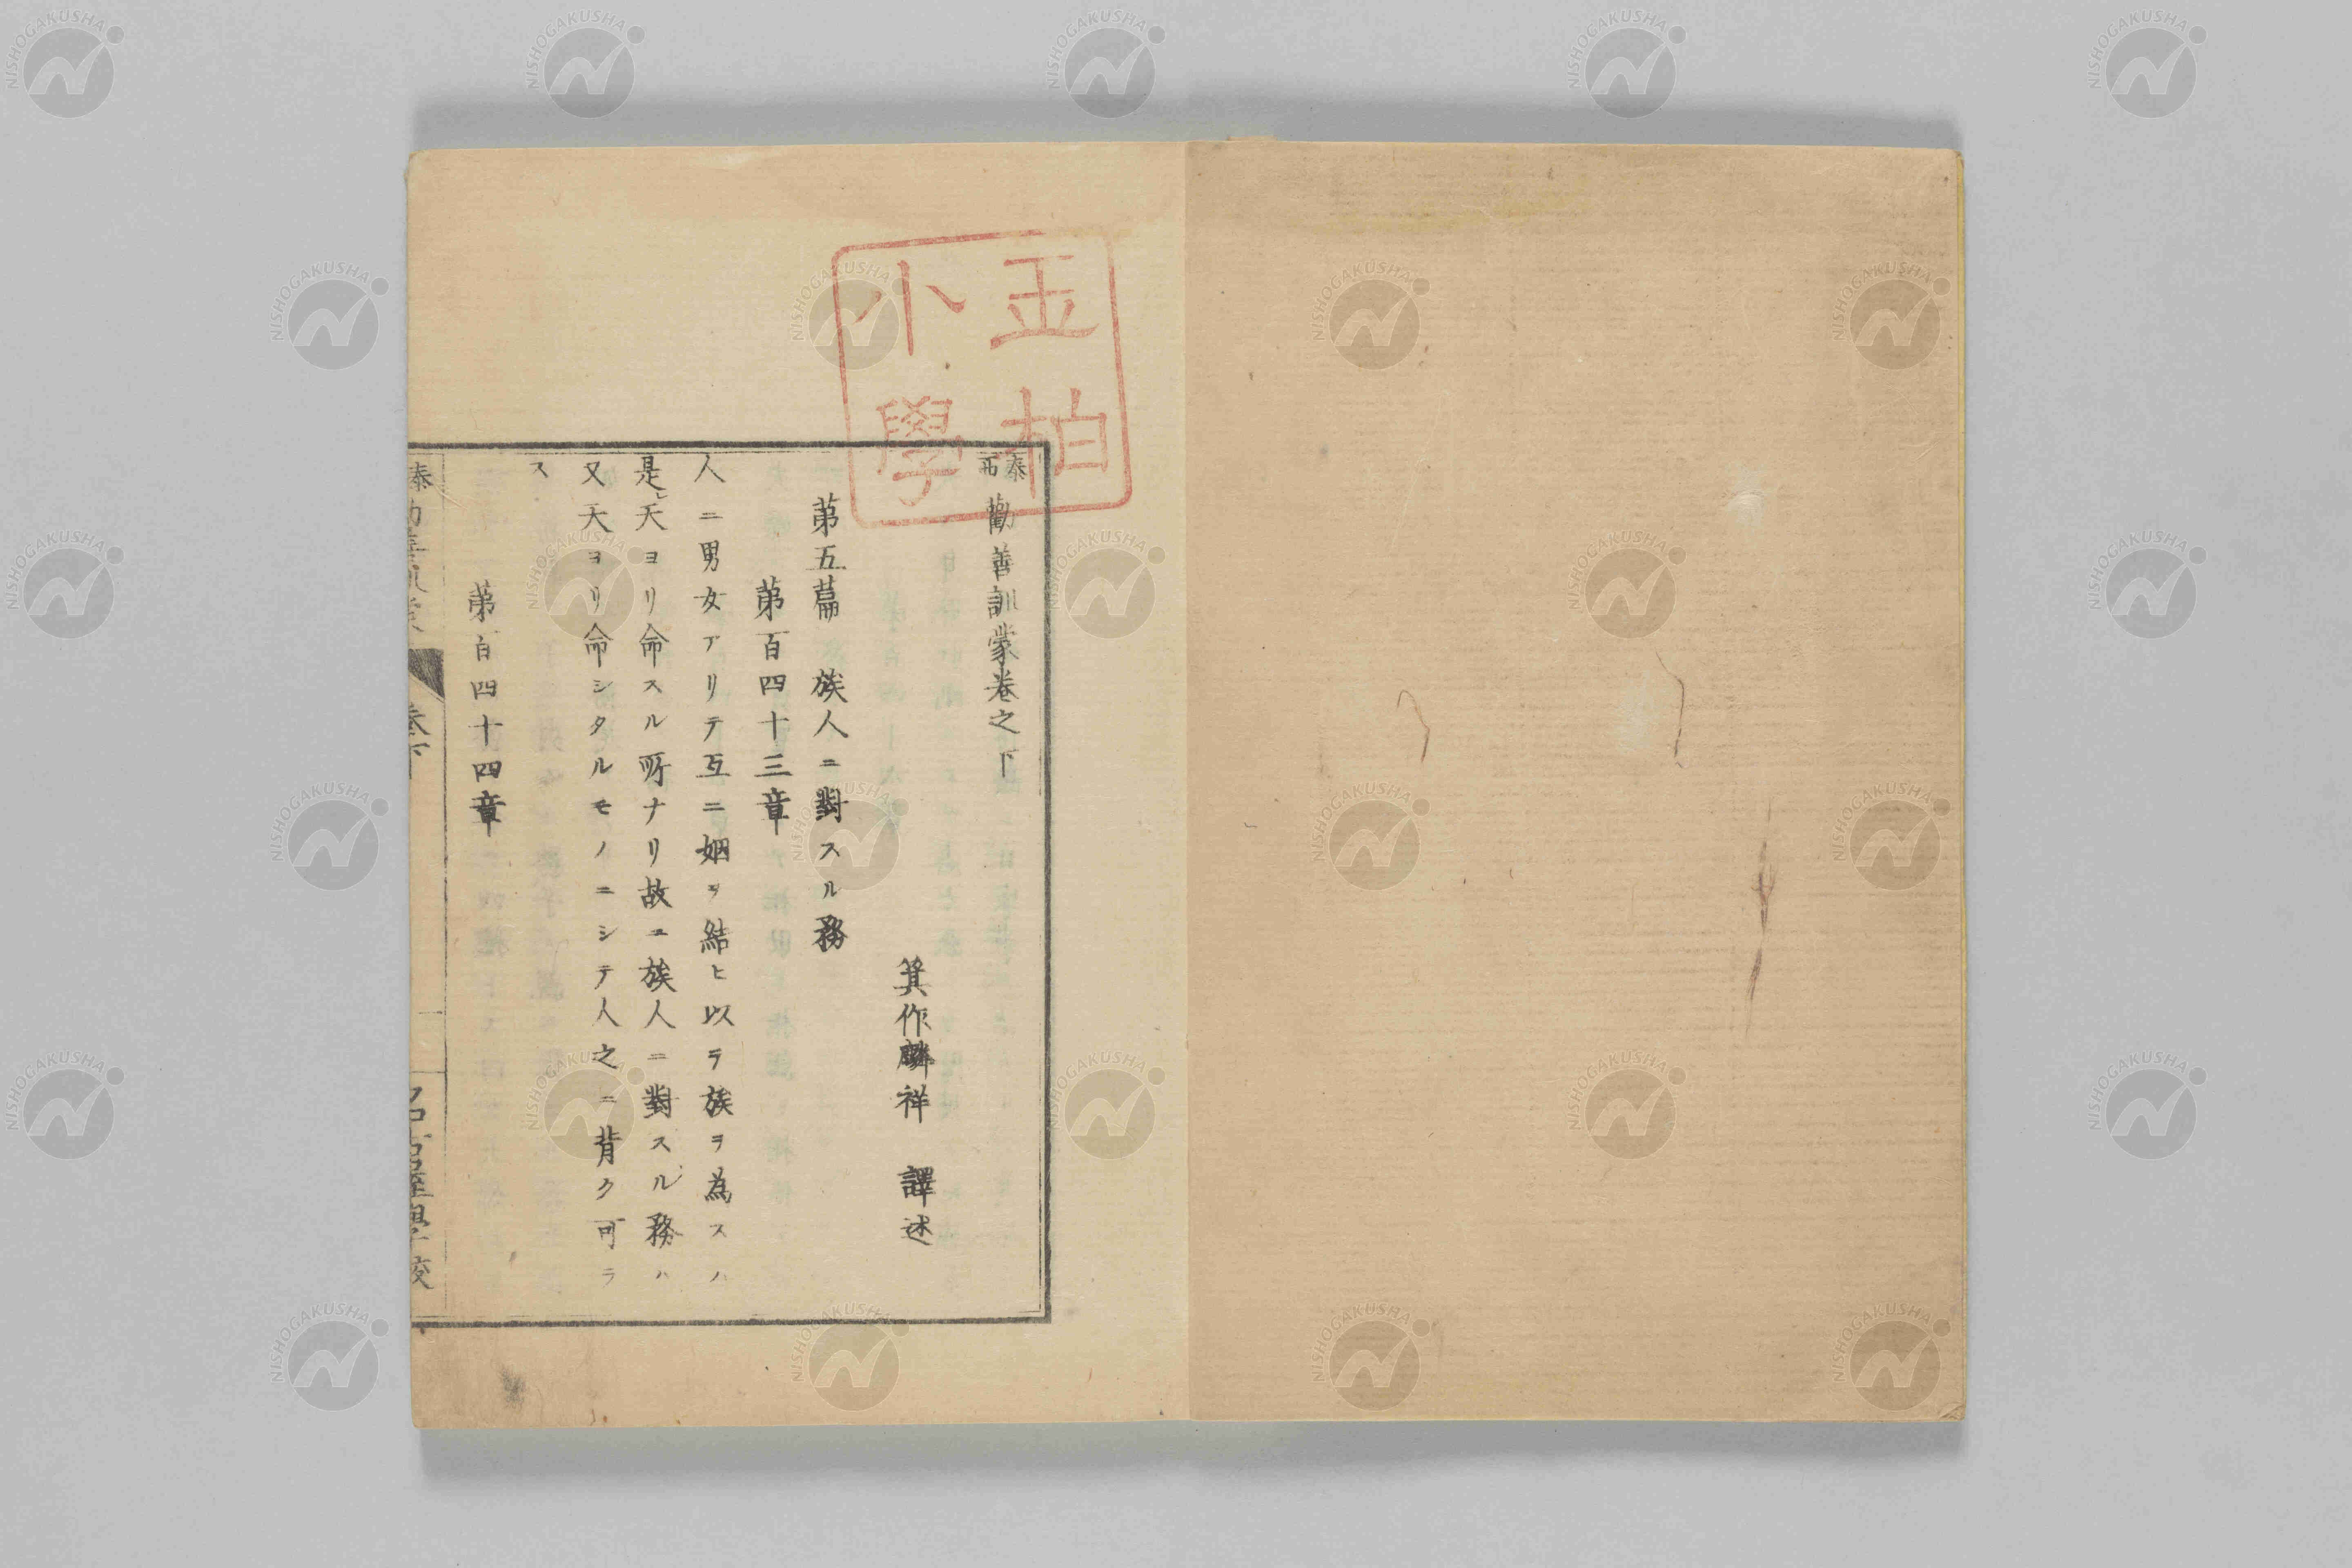 玉柏
小學
泰西勸善訓蒙卷之下
箕作麟祥 譯述
第五篇 族人ニ對スル務
第百四十三章
人ニ男女アリテ互ニ姻ヲ結ヒ以テ族ヲ為スハ
是レ天ヨリ命スル所ナリ故ニ族人ニ對スル務ハ
又天ヨリ命シタルモノニシテ人之ニ背ク可ラ
ス
第百四十四章
NISHOGAKUSHA